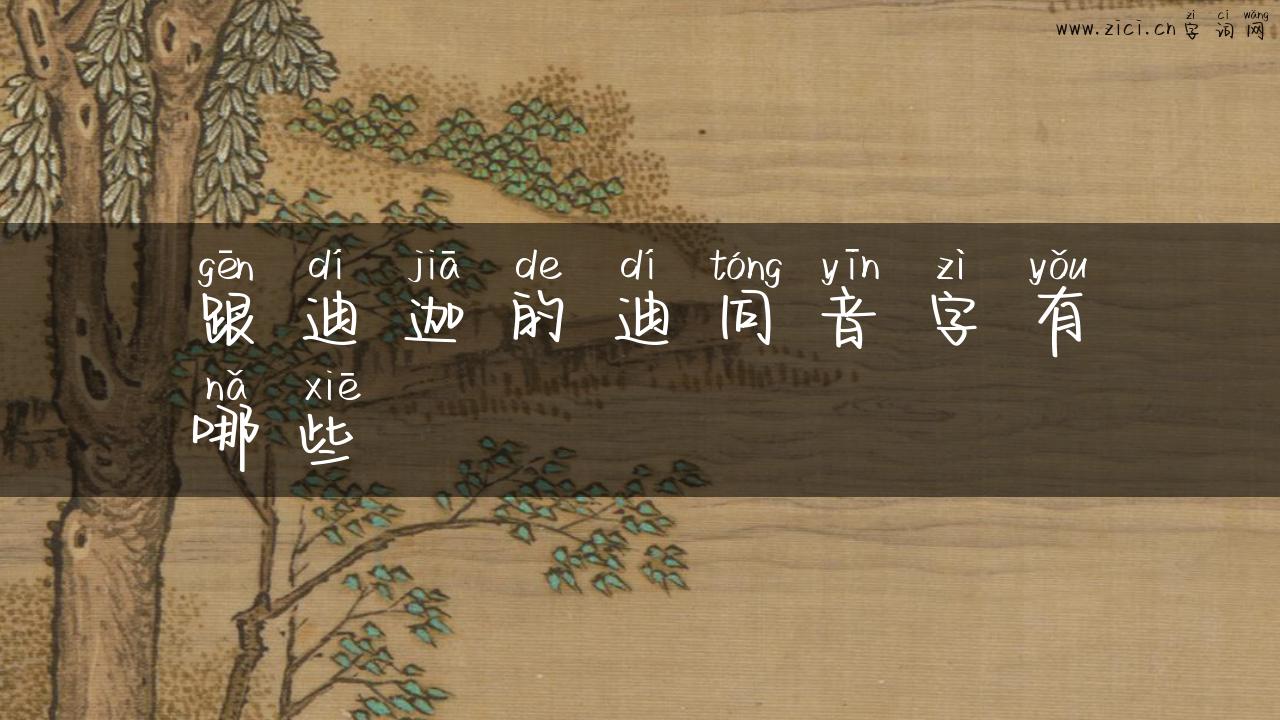 zì cí wǎng
www.zici.cn 字词网
gēn dí jiā de dí tóng yīn zì yǒu
跟迪迦的迪同音字有
nǎ xiē
哪些